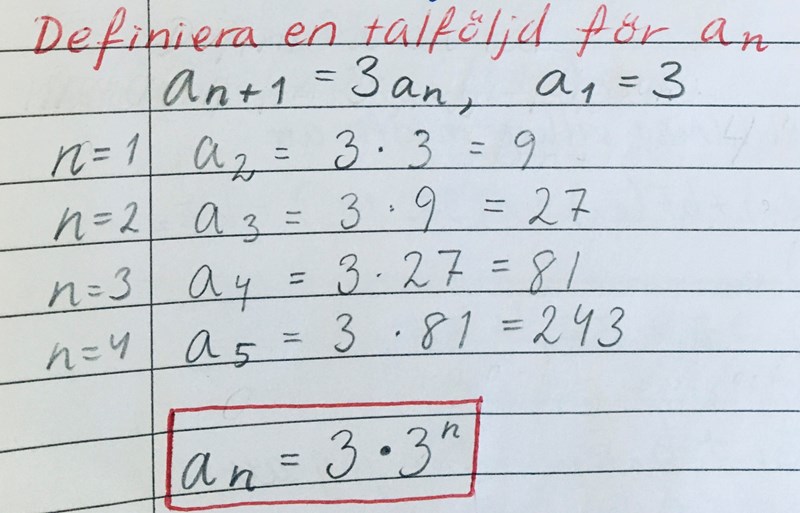 Definiera en talföljd för aₙ
aₙ₊₁ = 3aₙ, a₁ = 3
n=1 a₂ = 3 · 3 = 9
n=2 a₃ = 3 · 9 = 27
n=3 a₄ = 3 · 27 = 81
n=4 a₅ = 3 · 81 = 243
aₙ = 3 · 3ⁿ